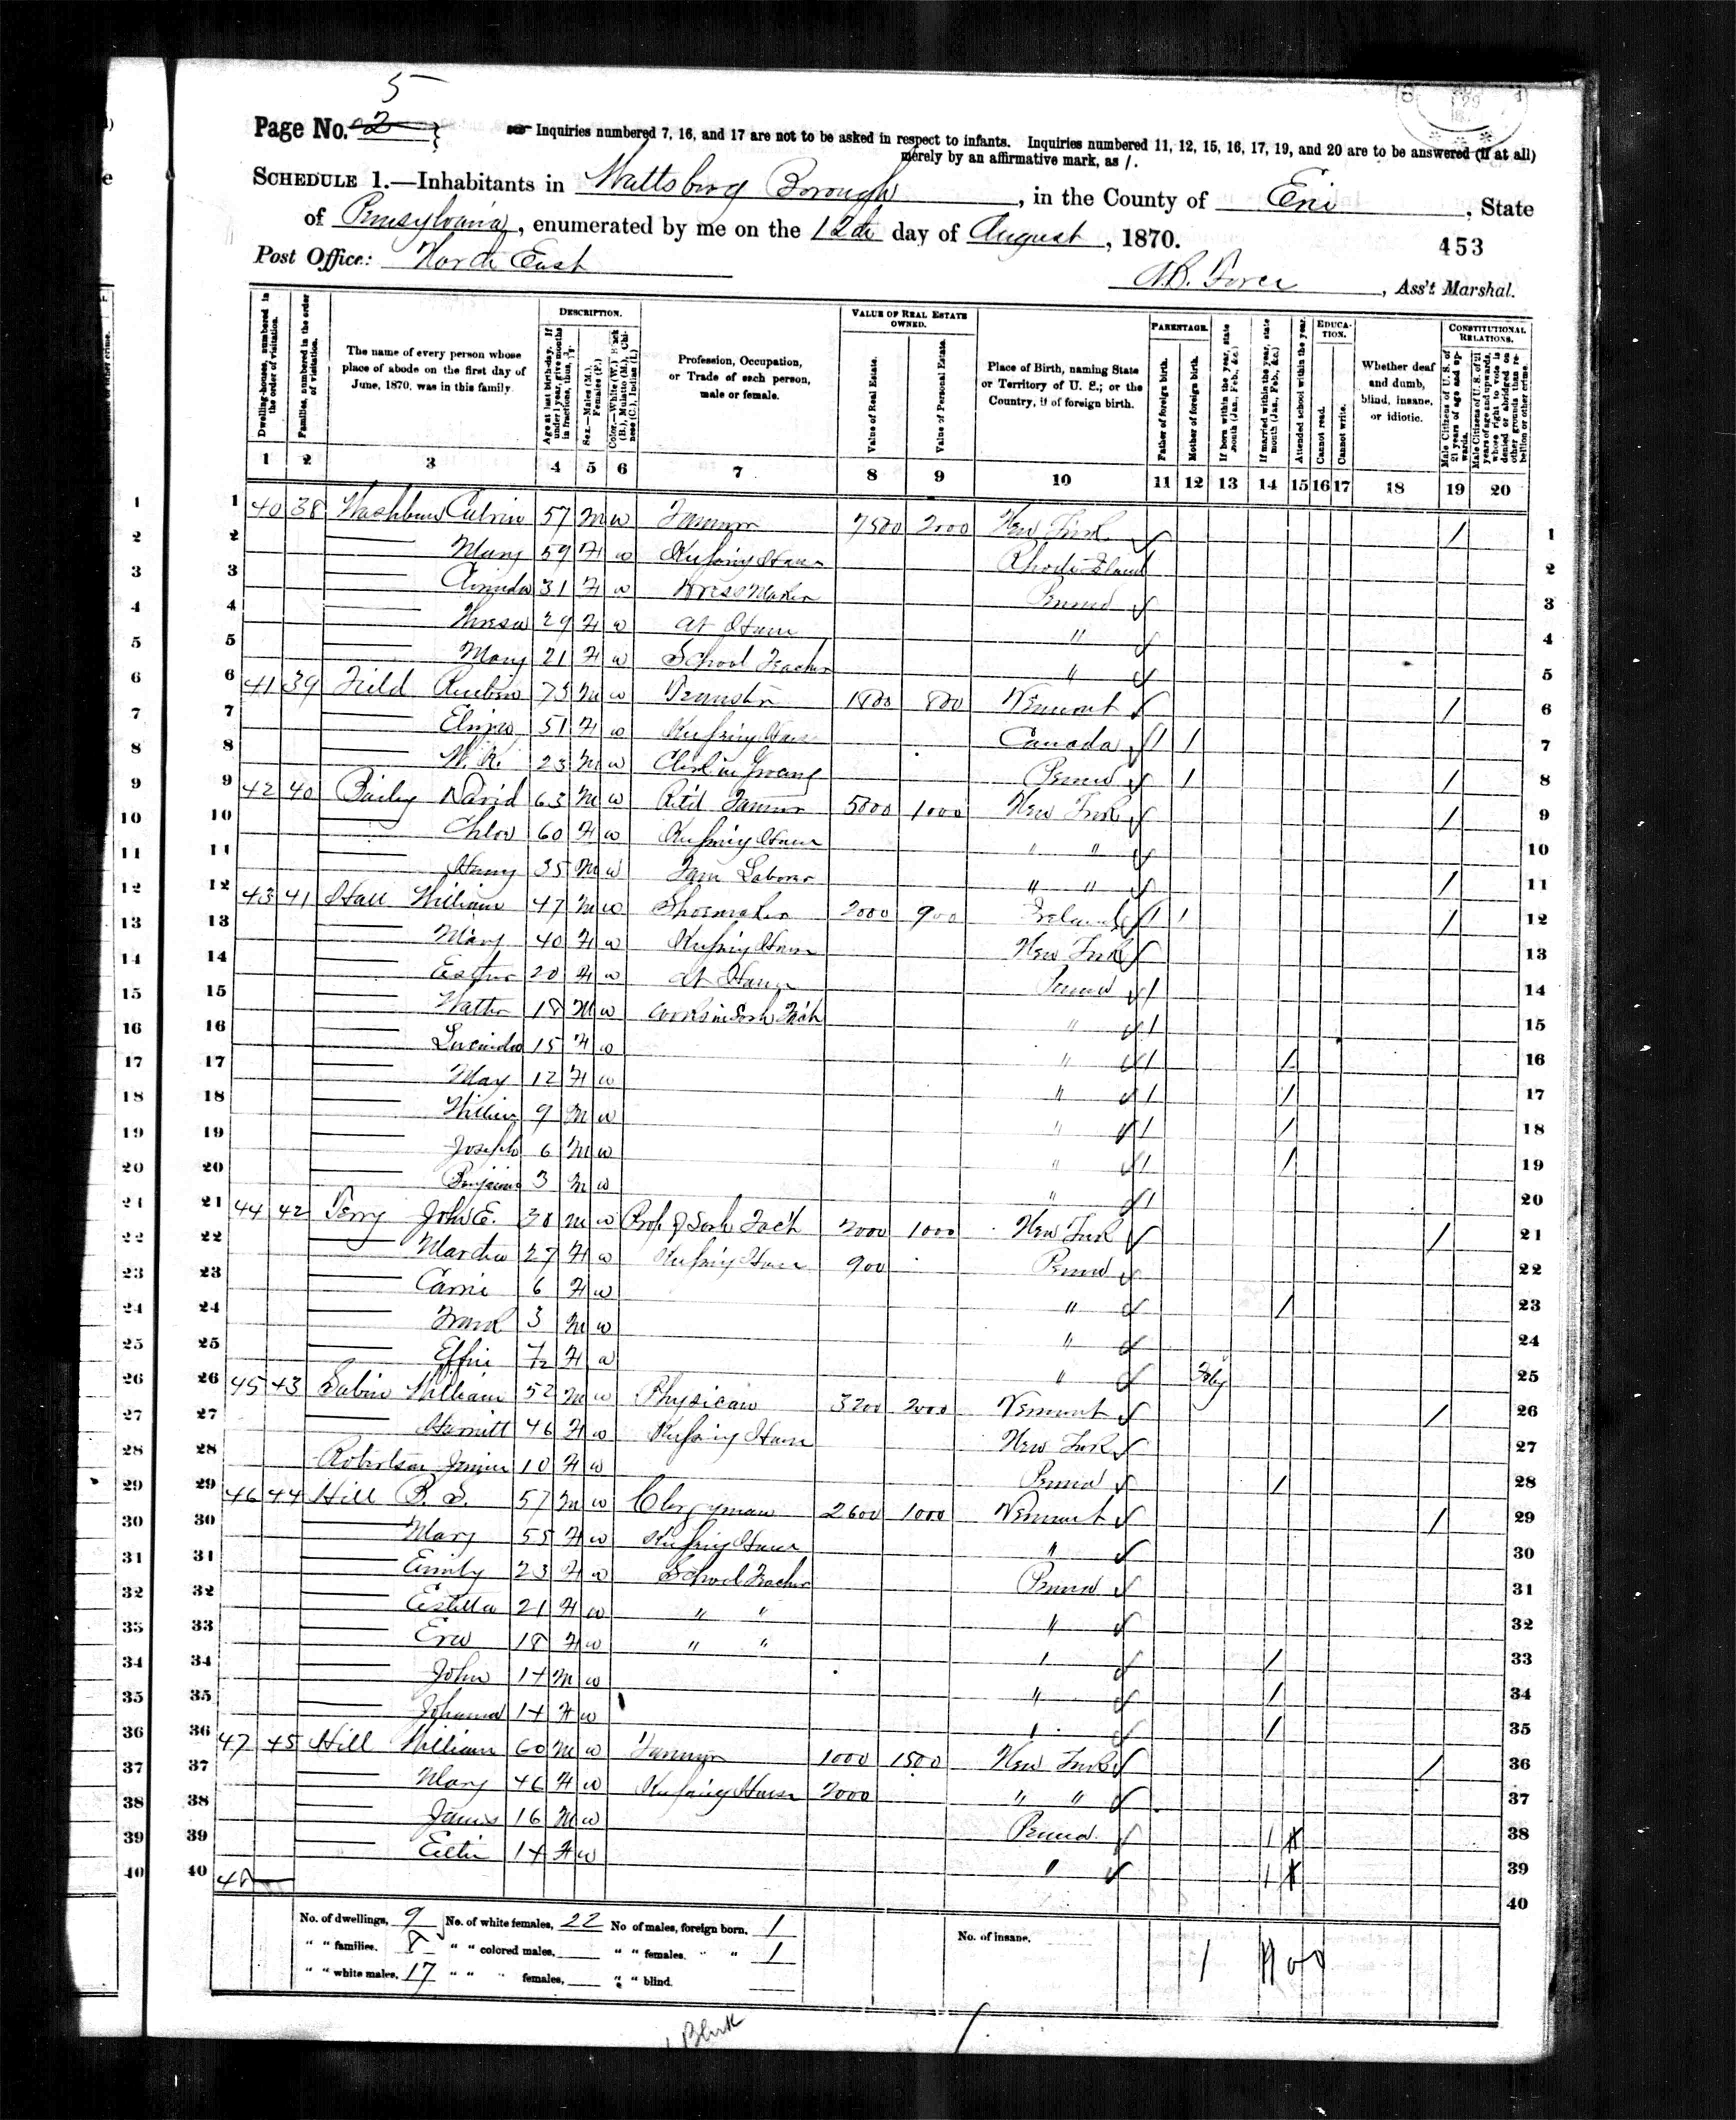 5
Page No. 2
Inquiries numbered 7, 16, and 17 are not to be asked in respect to infants. Inquiries numbered 11, 12, 15, 16, 17, 19, and 20 are to be answered (if at all)
merely by an affirmative mark, as /.
SCHEDULE 1.—Inhabitants in Wattsburg Borough, in the County of Erie, State
of Pennsylvania, enumerated by me on the 12th day of August, 1870.
453
Post Office: North East
Ass't Marshal.
DESCRIPTION. VALUE OF REAL ESTATE OWNED. PARENTAGE. EDUCATION. CONSTITUTIONAL RELATIONS.
Dwelling-houses, numbered in the order of visitation.
Families, numbered in the order of visitation.
The name of every person whose place of abode on the first day of June, 1870, was in this family.
Age at last birth-day. If under 1 year, give months in fractions, thus,
Sex.—Males (M.), Females (F.)
Color.—White (W.), Black (B.), Mulatto (M.), Chinese (C.), Indian (I.)
Profession, Occupation, or Trade of each person, male or female.
Value of Real Estate.
Value of Personal Estate.
Place of Birth, naming State or Territory of U. S.; or the Country, if of foreign birth.
Father of foreign birth.
Mother of foreign birth.
If born within the year, state month (Jan., Feb., &c.)
If married within the year, state month (Jan., Feb., &c.)
Attended school within the year.
Cannot read.
Cannot write.
Whether deaf and dumb, blind, insane, or idiotic.
Male Citizens of U. S. of 21 years of age and upwards.
Male Citizens of U. S. of 21 years of age and upwards, whose right to vote is denied or abridged on other grounds than rebellion or other crime.
1 2 3 4 5 6 7 8 9 10 11 12 13 14 15 16 17 18 19 20
1 40 38 Washburn Calvin 57 M W Farmer 7500 2000 New York / 1
2 Mary 59 F W Keeping House Rhode Island 2
3 31 F W Dress Maker Penna 3
4 29 F W At Home " 4
5 Mary 21 F W School Teacher " 5
6 41 39 Field Reuben 75 M W Teamster 1800 800 Vermont / 6
7 51 F W Keeping House Canada / / 7
8 23 M W Clerk in Grocery Penna / / 8
9 42 40 Bailey David 63 M W Ret'd Farmer 5000 1000 New York / 9
10 Chloe 60 F W Keeping House " " 10
11 Henry 35 M W Farm Laborer " " / 11
12 43 41 Hall William 47 M W Shoemaker 2000 900 Ireland / / / 12
13 Mary 40 F W Keeping House New York 13
14 Esther 20 F W At Home Penna / 14
15 Walter 18 M W Works in Sash Fact'h " / 15
16 Lucinda 15 F W " / / 16
17 May 12 F W " / / 17
18 Willie 9 M W " / / 18
19 Joseph 6 M W " / / 19
20 Benjamin 3 M W " / 20
21 44 42 Terry John E. 30 M W Prop of Sash Fact'h 2000 1000 New York / 21
22 Martha 27 F W Keeping House 900 Penna 22
23 Carrie 6 F W " / 23
24 Frank 3 M W " 24
25 Effie F W " 25
26 45 43 Sabin William 52 M W Physician 3200 2000 Vermont / 26
27 Harriett 46 F W Keeping House New York 27
28 Robertson Jennie 10 F W Penna / 28
29 46 44 Hill 57 M W Clergyman 2600 1000 Vermont / 29
30 Mary 55 F W Keeping House " 30
31 Emily 23 F W School Teacher Penna 31
32 Estella 21 F W " " " 32
33 18 F W " " " / 33
34 John 14 M W " / 34
35 Johanna 14 F W " / 35
36 47 45 Hill William 60 M W Farmer 1000 1500 New York / 36
37 Mary 46 F W Keeping House 2000 " " 37
38 James 16 M W Penna / 38
39 14 F W " / 39
40 48 40
No. of dwellings, 9 No. of white females, 22 No of males, foreign born, 1 No. of insane,
" " families, 8 " " colored males, " " females, " " 1
" " white males, 17 " " " females, " " blind,